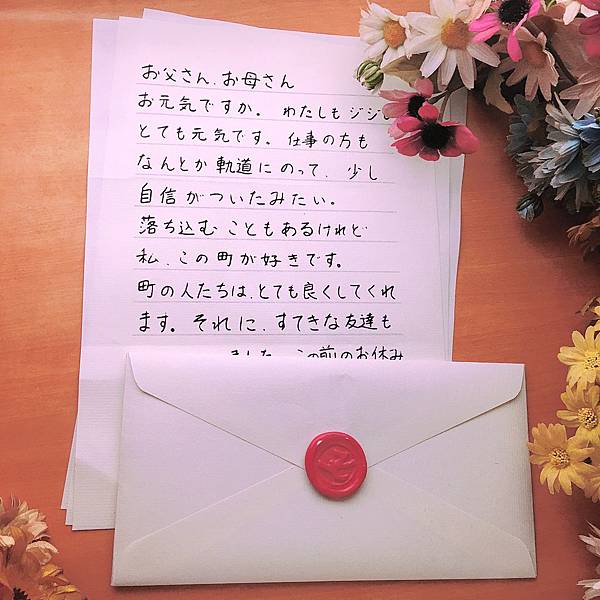 お父さん、お母さん
お元気ですか。わたしもジジ
とても元気です。仕事の方も
なんとか軌道にのって、少し
自信がついたみたい。
落ち込むこともあるけれど
私、この町が好きです。
町の人たちは、とても良くしてくれ
ます。それに、すてきな友達も
ました。この前のお休み